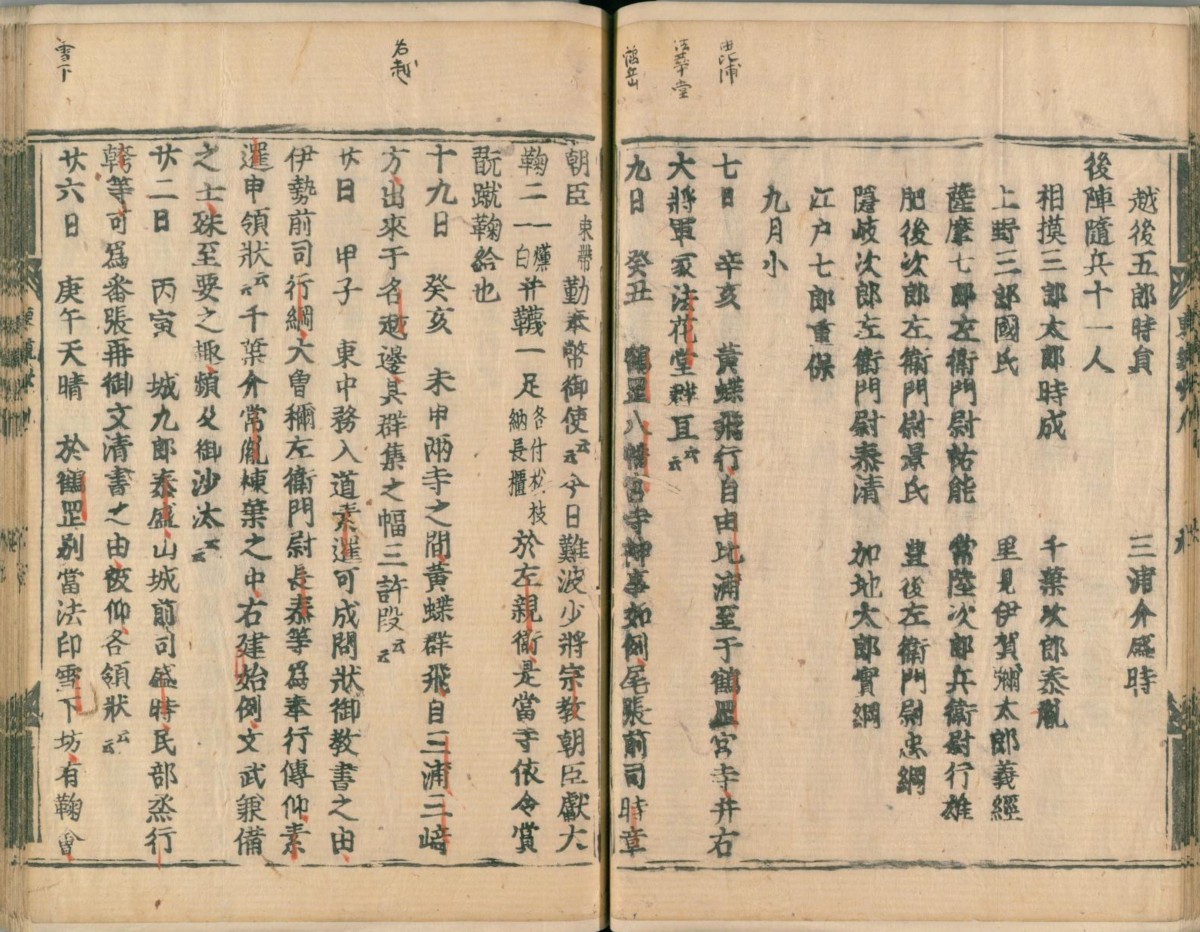 毘浦
法華堂
鶴岳
越後五郎時員 三浦介盛時
後陣隨兵十一人
相摸三郎太郎時成 千葉次郎泰胤
上野三郎國氏 里見伊賀弥太郎義經
薩摩七郎左衛門尉祐能 常陸次郎兵衛尉行雄
肥後次郎左衛門尉景氏 豊後左衛門尉忠綱
隱岐次郎左衛門尉泰清 加地太郎實綱
江户七郎重保
九月小
七日 辛亥 黃蝶飛行自由比浦至于鶴罡宮寺并右
大將軍家法花堂群亘云云
九日 癸丑 鶴罡八幡宮寺神事如例尾張前司時章
名越
雪下
朝臣束帶勤奉幣御使云云今日難波少將宗教朝臣獻大
鞠二一燻一白并韈一足各付松枝納長櫃於左親衛是當寺依令賞
翫蹴鞠給也
十九日 癸亥 未申兩寺之間黃蝶群飛自三浦三﨑
方出來于名越邊其群集之幅三許段云云
廿日 甲子 東中務入道素暹可成問狀御教書之由
伊勢前司行綱大曽禰左衛門尉長泰等爲奉行傳仰素
暹申領狀云云千葉介常胤棟葉之中右建始例文武兼備
之士殊至要之趣頻及御沙汰云云
廿二日 丙寅 城九郎泰盛山城前司盛時民部烝行
幹等可爲番張再御文清書之由被仰各領狀云云
廿六日 庚午天晴 於鶴罡別當法印雪下坊有鞠會